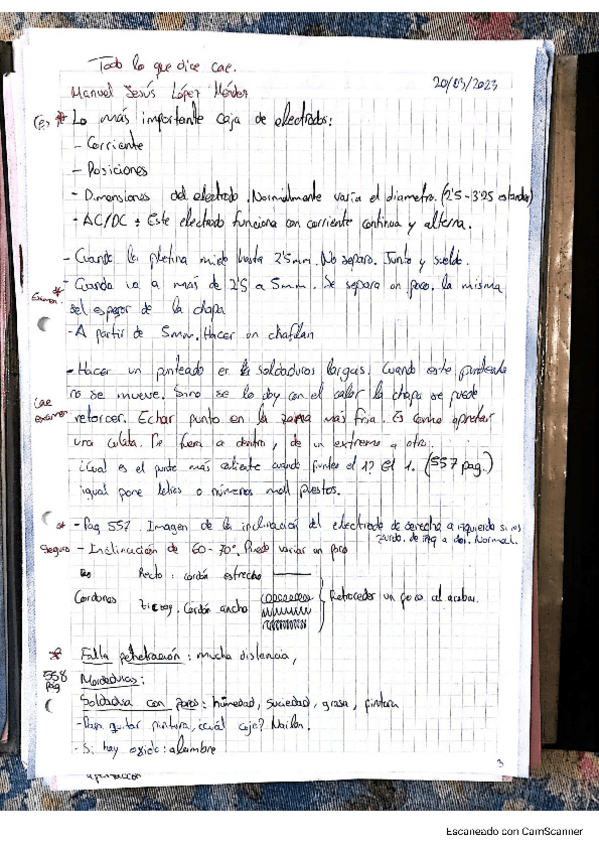 Todo lo que dice cae.
Manuel Jesús López Méndez
20/03/2023
* Lo más importante caja de electrodos:
- Corriente
- Posiciones
- Dimensiones del electrodo. Normalmente varía el diametro. (2'5-3'25 estandar)
- AC/DC: Este electrodo funciona con corriente continua y alterna.
- Cuando la pletina mide hasta 2'5mm. No separo. Junto y sueldo.
- Cuando va a más de 2'5 a 5mm. Se separa un poco. la misma
Examen *
del espesor de la chapa
- A partir de 5mm. Hacer un chaflan
- Hacer un punteado en las soldaduras largas. Cuando esta punteada
no se mueve. Sino se lo doy con el calor la chapa se puede
Cae examen
retorcer. Echar punto en la zona más fria. Es como apretar
una culata. De fuera a dentro, de un extremo a otro.
¿Cual es el punto más caliente cuando puntes el 1? el 1. (557 pag.)
igual pone letras o números mal puestos.
* - Pag 557. Imagen de la inclinación del electrodo de derecha a izquierda si es
zurdo. de izq a der. Normal.
Seguro - Inclinación de 60-70°. Puede variar un poco
Recto: cordón estrecho
Cordones
Zig zag: Cordón ancho
Retroceder un poco al acabar.
* Falta penetración: mucha distancia,
558 pag
Mordeduras:
Soldadura con poros: humedad, suciedad, grasa, pintura
- Para quitar pintura, ¿cuál coje? Nailon.
- Si hay oxido: alambre
3
Escaneado con CamScanner